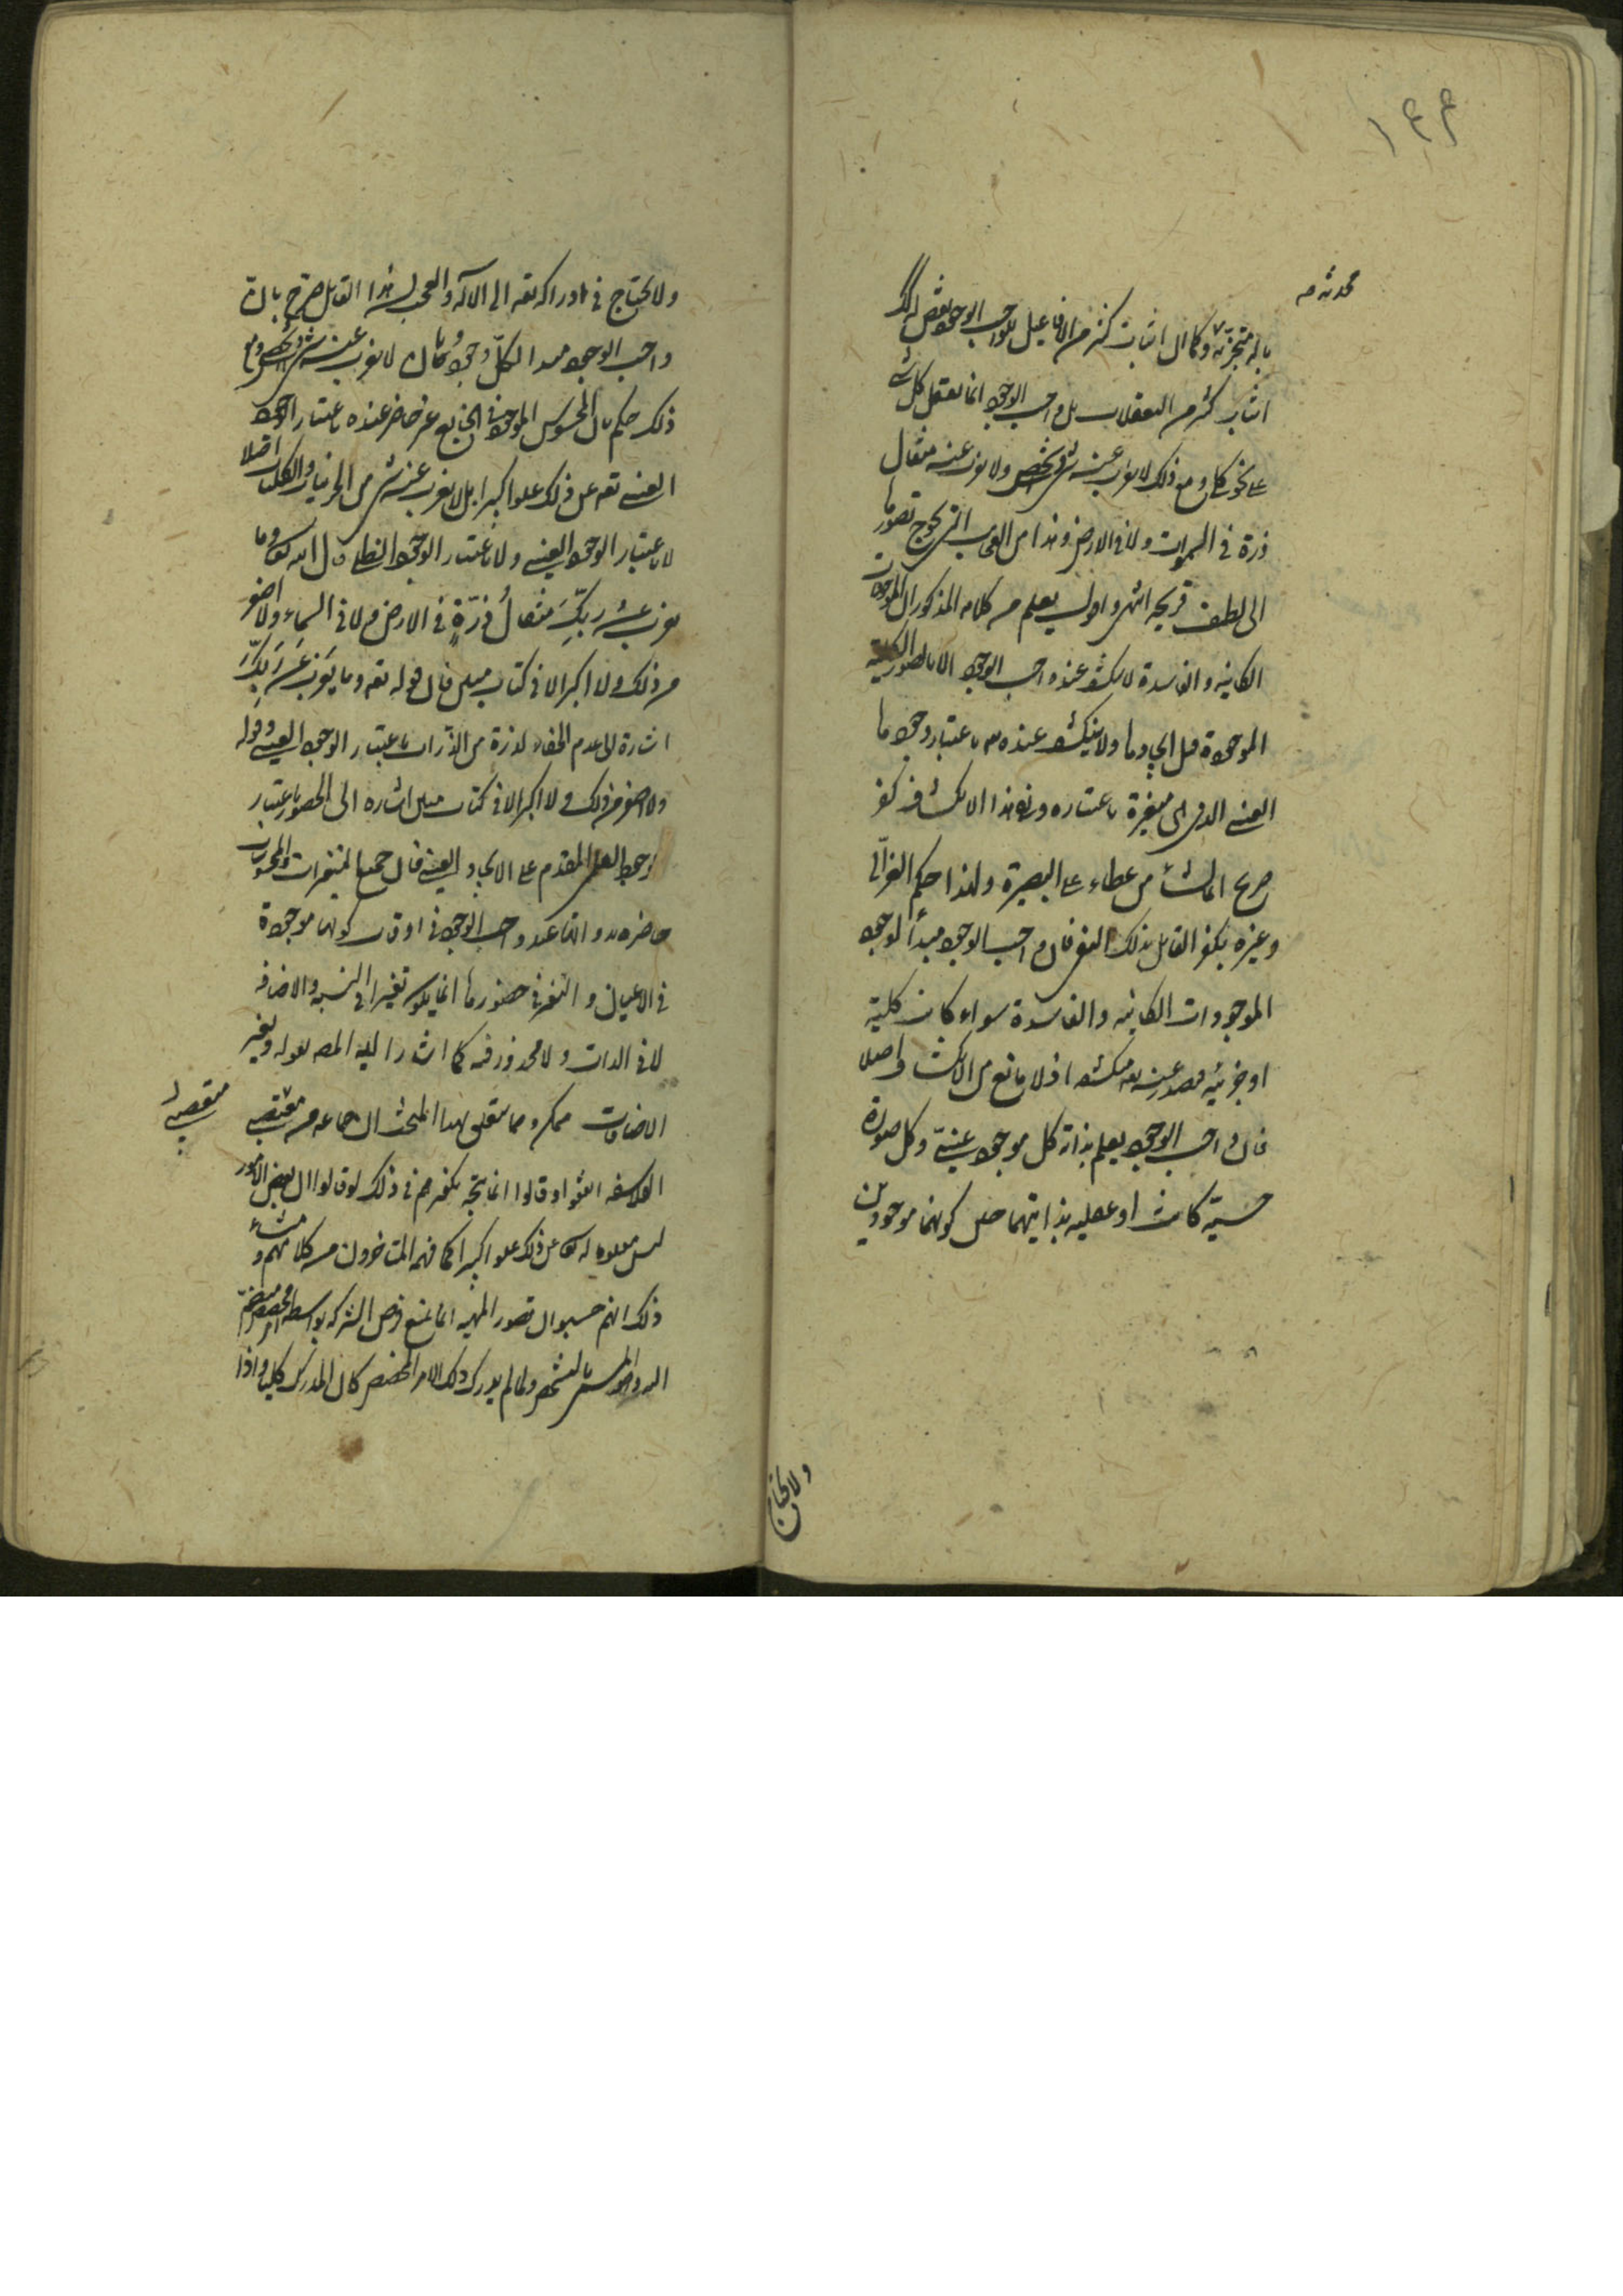 ١٤٤
بالة متجزئة وكما ان اثبات كثير من الافاعيل للواجب الوجود نقص له كذلك
اثبات كثير من التعقلات بل واجب الوجود انما يعقل كل شئ
على نحو كلي ومع ذلك لا يعزب عنه شئ شخصي ولا يعزب عنه مثقال
ذرة في السموات ولا في الارض وهذا من العجايب التي يحوج تصورها
الى لطف قريحة انتهى واقول يعلم من كلامه المذكور ان الموجودات
الكاينة والفاسدة لا ينكشف عند واجب الوجود الا بالصور الكلية
الموجودة قبل ايجادها ولا ينكشف عنده تعه باعتبار وجودها
العيني الذي هي متغيرة باعتباره ونفي هذا الانكشاف كفر
صريح انما نشأ من غطاء على البصيرة ولهذا حكم الغزالي
وغيره بكفر القائل بذلك النفي فان واجب الوجود مبدأ لوجود
الموجودات الكاينة والفاسدة سواء كانت كلية
او جزئية فصدر عنه تعه منكشفة اذ لا مانع من الانكشاف اصلا
فان واجب الوجود يعلم بذاته كل موجود عيني وكل صورة
حسية كانت او عقلية بذاتيهما حين كونهما موجودين
ولا يحتاج
ولا يحتاج في ادراكه تعه الى الالة والعجب ان هذا القائل صرح بان
واجب الوجود مبدا لكل وجود وبانه لا يعزب عنه شئ شخصي ومع
ذلك حكم بان المحسوس الموجود في الخارج غير حاضر عنده باعتبار الوجود
العيني تعه عن ذلك علوا كبيرا بل لا يعزب عنه شئ من الجزئيات والكليات اصلا
لا باعتبار الوجود العيني ولا باعتبار الوجود الظلي قال الله تعالى وما
يعزب عن ربك من مثقال ذرة في الارض ولا في السماء ولا اصغر
من ذلك ولا اكبر الا في كتاب مبين فان قوله تعه وما يعزب عن ربك
اشارة الى عدم الخفاء لذرة من الذرات باعتبار الوجود العيني وقوله
ولا اصغر من ذلك ولا اكبر الا في كتاب مبين اشارة الى الحضور باعتبار
الوجود العلمي المقدم على الايجاد العيني فان جميع المتغيرات والمجردات
حاضرة عند واجب الوجود في اوقات كونها موجودة
في الاعيان والتغير في حضورها انما يكون تغيرا في النسبة والاضافة
لا في الذات ولا محذور فيه كما اشار اليه المص بقوله وتغير
الاضافات ممكن ومما يتعلق بهذا المبحث ان جماعة من متعصبي
متعصبي
الفلاسفة اتفقوا وقالوا انما يتجه تكفيرهم في ذلك لو قالوا ان بعض الامور
ليس معلوما له تعالى عن ذلك علوا كبيرا كما فهمه المتاخرون من كلامهم ومنشاء
ذلك انهم حسبوا ان تصور المهية انما يمنع فرض الشركة بواسطة امر مخصص منضم
اليه والمسمى بالتشخص ولما لم يدرك ذلك الامر المخصص كان المدرك كليا واذا